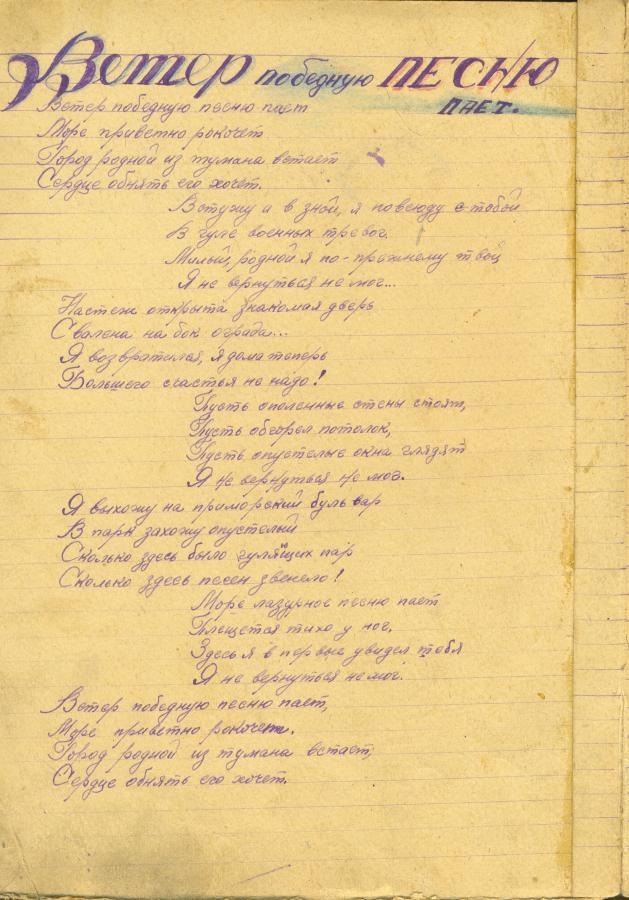 Ветер победную ПЕСНЮ
ПАЕТ.
Ветер победную песню пает
Море приветно рокочет
Город родной из тумана встает
Сердце обнять его хочет.
В стужу и в зной, я повсюду с тобой
В гуле военных тревог.
Милый, родной я по-прежнему твой
Я не вернуться не мог...
Настеж открыта знакомая дверь
Свалена на бок ограда...
Я возвратился, я дома теперь
Большего счастья не надо!
Пусть ополенные стены стоят,
Пусть обгорел потолок,
Пусть опустелые окна глядят
Я не вернуться не мог.
Я выхожу на приморский бульвар
В парк захожу опустелый
Сколько здесь было гулящих пар
Сколько здесь песен звенело!
Море лазурное песню пает
Плещется тихо у ног.
Здесь я в первые увидел тебя
Я не вернуться не мог.
Ветер победную песню пает,
Море приветно рокочет.
Город родной из тумана встает,
Сердце обнять его хочет.